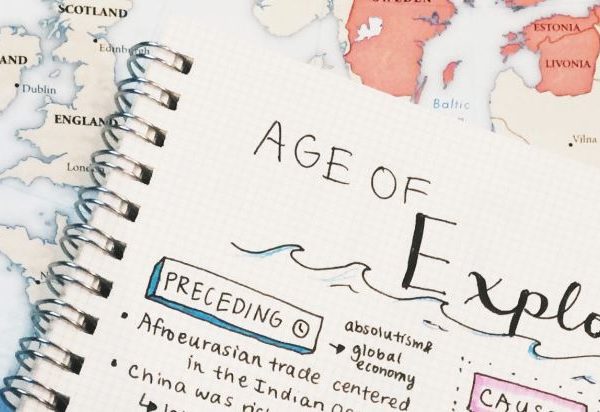 SCOTLAND
Edinburgh
Dublin
ENGLAND
SWEDEN
ESTONIA
LIVONIA
Baltic
Vilna
AGE OF
Explo
PRECEDING
absolutism &
→ global
economy
• Afroeurasian trade centered
in the Indian
• China was
CAUS